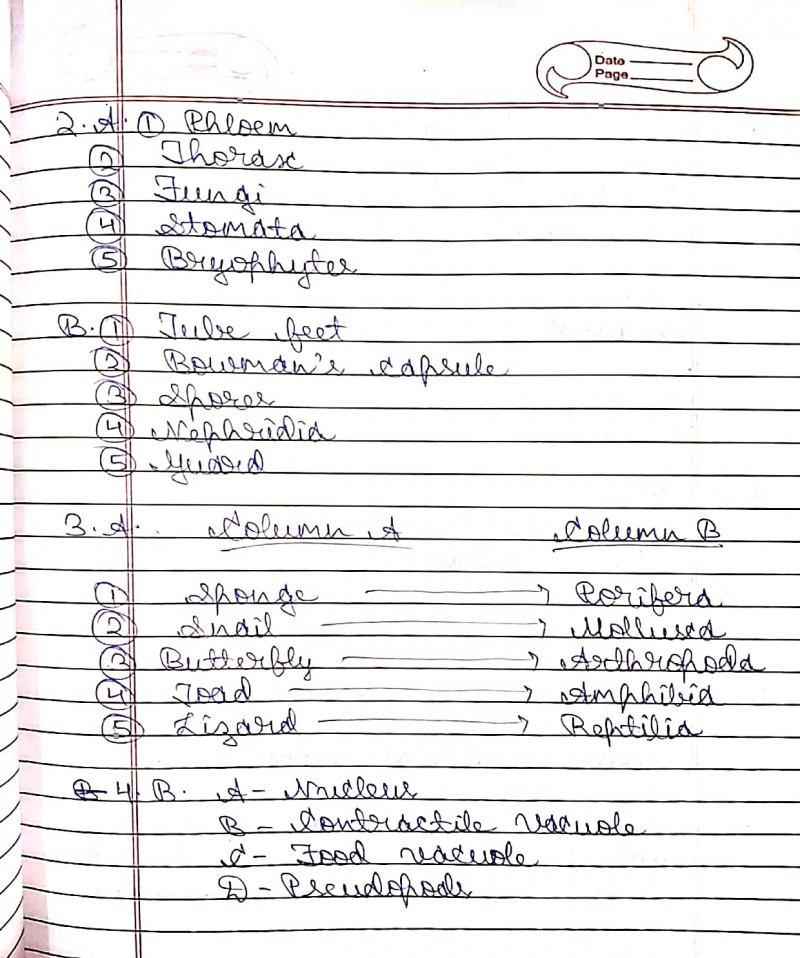 Date
Page
2. A. ① Phloem
② Thorax
③ Fungi
④ Stomata
⑤ Bryophytes
B. ① Tube feet
② Bowman's capsule
③ Spores
④ Nephridia
⑤ Guard
3. A. Column A Column B
① Sponge → Porifera
② Snail → Mollusca
③ Butterfly → Arthropoda
④ Toad → Amphibia
⑤ Lizard → Reptilia
4. B. A - Nucleus
B - Contractile vacuole
C - Food vacuole
D - Pseudopods